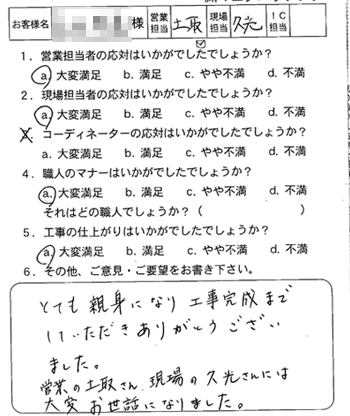 お客様名 様 営業担当 土取 現場担当 久光 IC担当
1．営業担当者の応対はいかがでしたでしょうか？
a. 大変満足 b. 満足 c. やや不満 d. 不満
2．現場担当者の応対はいかがでしたでしょうか？
a. 大変満足 b. 満足 c. やや不満 d. 不満
3．コーディネーターの応対はいかがでしたでしょうか？
a. 大変満足 b. 満足 c. やや不満 d. 不満
4．職人のマナーはいかがでしたでしょうか？
a. 大変満足 b. 満足 c. やや不満 d. 不満
それはどの職人でしょうか？（ ）
5．工事の仕上がりはいかがでしたでしょうか？
a. 大変満足 b. 満足 c. やや不満 d. 不満
6．その他、ご意見・ご要望をお書き下さい。
とても親身になり工事完成まで
していただきありがとうござい
ました。
営業の土取さん 現場の久光さんには
大変お世話になりました。